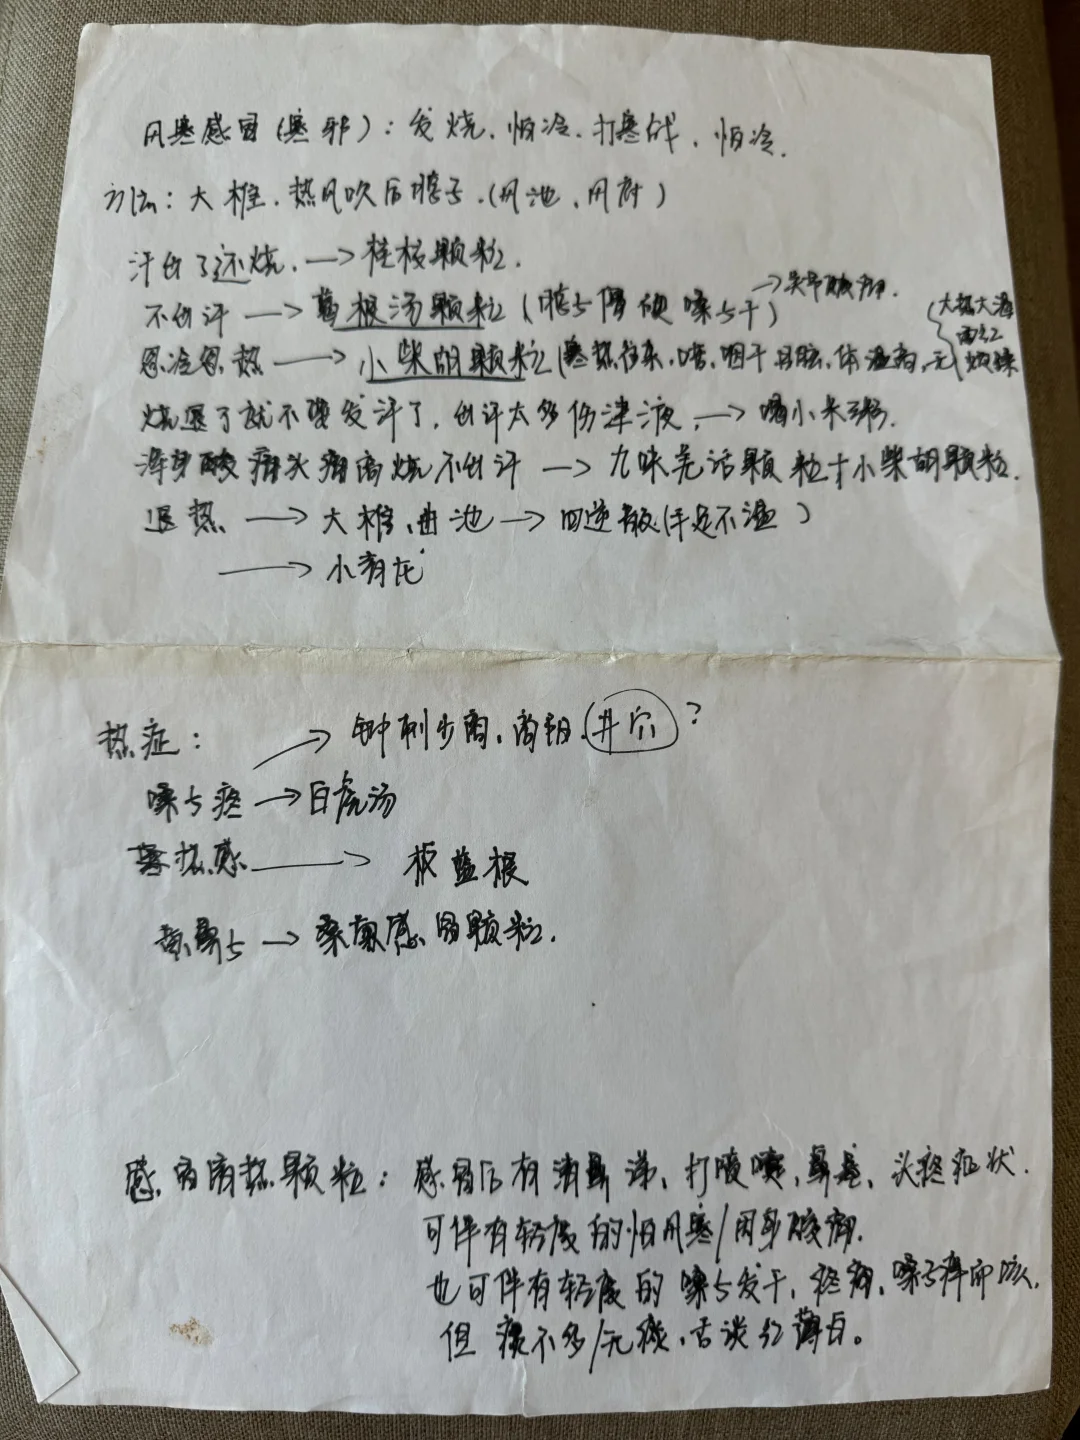 风寒感冒(寒邪)：发烧、怕冷、打寒战、怕冷.
方法：大椎、热风吹后脖子.(风池、风府)
汗出了还烧.→桂枝颗粒.
→关节酸痛.
不出汗→葛根汤颗粒(脖子僵硬嗓子干)
忽冷忽热→小柴胡颗粒(寒热往来,咽干目眩,体温高,无{大热大渴
面红
烦躁
烧退了就不要发汗了,出汗太多伤津液,→喝小米粥.
浑身酸痛头痛高烧不出汗→九味羌活颗粒+小柴胡颗粒.
退热→大椎、曲池→四逆散(手足不温)
→小青龙
热症：
→针刺少商、商阳、井穴?
嗓子疼→白虎汤
→板蓝根
黄鼻子→桑菊感冒颗粒.
感冒清热颗粒：感冒后有清鼻涕、打喷嚏、鼻塞、头疼症状.
可伴有轻度的怕风寒/周身酸痛.
也可伴有轻度的嗓子发干、疼痛、嗓子痒而咳.
但痰不多/无痰、舌淡红薄白。